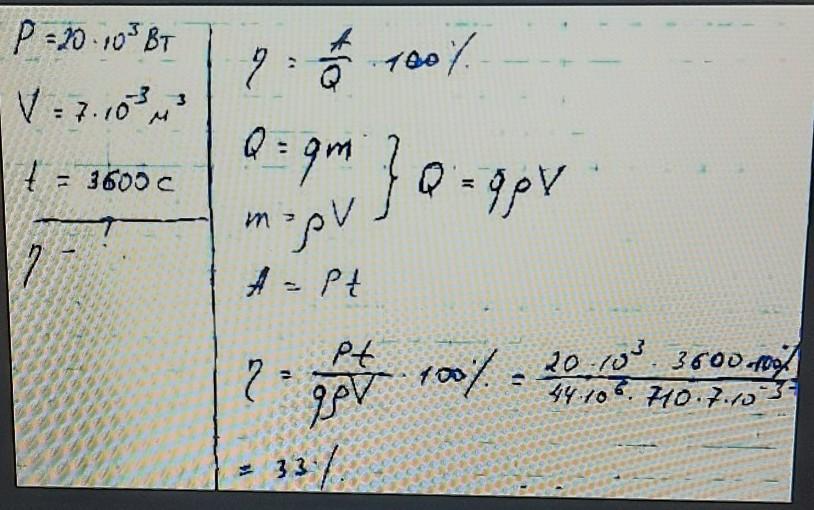 P = 20 · 10³ Вт
V = 7 · 10⁻³ м³
t = 3600 с
η - ?
η = A/Q · 100%
Q = qm
m = ρV } Q = qρV
A = Pt
η = Pt/qρV · 100% = 20 · 10³ · 3600 · 100%/44 · 10⁶ · 710 · 7 · 10⁻³ =
= 33%